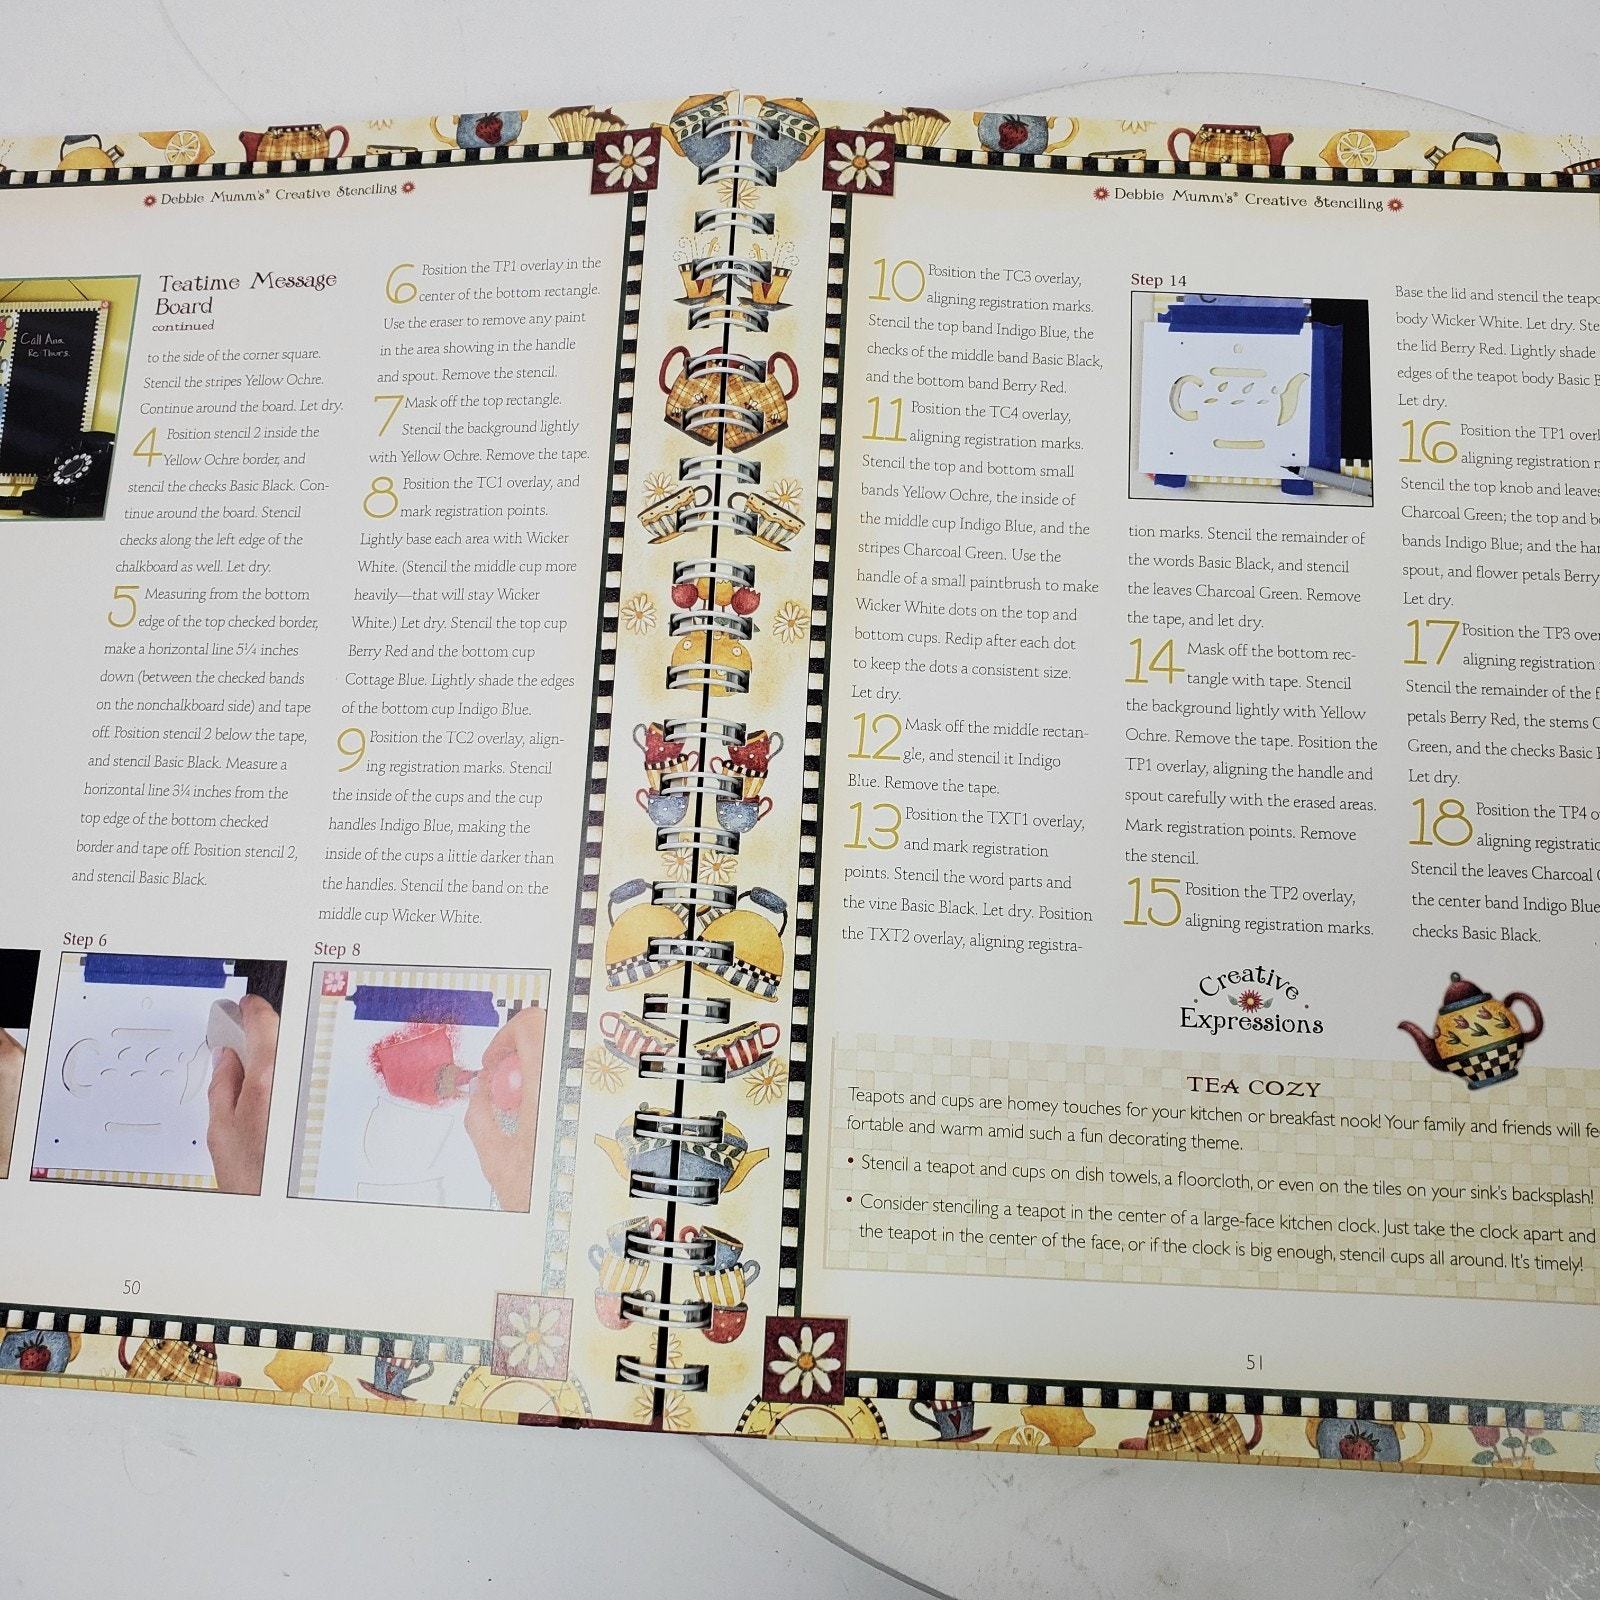 Debbie Mumm's® Creative Stenciling
Call Ana
Re Thurs.
Teatime Message
Board
continued
to the side of the corner square.
Stencil the stripes Yellow Ochre.
Continue around the board. Let dry.
4 Position stencil 2 inside the
Yellow Ochre border, and
stencil the checks Basic Black. Con-
tinue around the board. Stencil
checks along the left edge of the
chalkboard as well. Let dry.
5 Measuring from the bottom
edge of the top checked border,
make a horizontal line 5¼ inches
down (between the checked bands
on the nonchalkboard side) and tape
off. Position stencil 2 below the tape,
and stencil Basic Black. Measure a
horizontal line 3¼ inches from the
top edge of the bottom checked
border and tape off. Position stencil 2,
and stencil Basic Black.
6 Position the TP1 overlay in the
center of the bottom rectangle.
Use the eraser to remove any paint
in the area showing in the handle
and spout. Remove the stencil.
7 Mask off the top rectangle.
Stencil the background lightly
with Yellow Ochre. Remove the tape.
8 Position the TC1 overlay, and
mark registration points.
Lightly base each area with Wicker
White. (Stencil the middle cup more
heavily—that will stay Wicker
White.) Let dry. Stencil the top cup
Berry Red and the bottom cup
Cottage Blue. Lightly shade the edges
of the bottom cup Indigo Blue.
9 Position the TC2 overlay, align-
ing registration marks. Stencil
the inside of the cups and the cup
handles Indigo Blue, making the
inside of the cups a little darker than
the handles. Stencil the band on the
middle cup Wicker White.
Step 6
Step 8
50
Debbie Mumm's® Creative Stenciling
10 Position the TC3 overlay,
aligning registration marks.
Stencil the top band Indigo Blue, the
checks of the middle band Basic Black,
and the bottom band Berry Red.
11 Position the TC4 overlay,
aligning registration marks.
Stencil the top and bottom small
bands Yellow Ochre, the inside of
the middle cup Indigo Blue, and the
stripes Charcoal Green. Use the
handle of a small paintbrush to make
Wicker White dots on the top and
bottom cups. Redip after each dot
to keep the dots a consistent size.
Let dry.
12 Mask off the middle rectan-
gle, and stencil it Indigo
Blue. Remove the tape.
13 Position the TXT1 overlay,
and mark registration
points. Stencil the word parts and
the vine Basic Black. Let dry. Position
the TXT2 overlay, aligning registra-
Step 14
tion marks. Stencil the remainder of
the words Basic Black, and stencil
the leaves Charcoal Green. Remove
the tape, and let dry.
14 Mask off the bottom rec-
tangle with tape. Stencil
the background lightly with Yellow
Ochre. Remove the tape. Position the
TP1 overlay, aligning the handle and
spout carefully with the erased areas.
Mark registration points. Remove
the stencil.
15 Position the TP2 overlay,
aligning registration marks.
Base the lid and stencil the teapo
body Wicker White. Let dry. Ste
the lid Berry Red. Lightly shade
edges of the teapot body Basic B
Let dry.
16 Position the TP1 overl
aligning registration
Stencil the top knob and leaves
Charcoal Green; the top and b
bands Indigo Blue; and the ha
spout, and flower petals Berry
Let dry.
17 Position the TP3 over
aligning registration
Stencil the remainder of the f
petals Berry Red, the stems C
Green, and the checks Basic
Let dry.
18 Position the TP4 o
aligning registratio
Stencil the leaves Charcoal
the center band Indigo Blue
checks Basic Black.
Creative
Expressions
TEA COZY
Teapots and cups are homey touches for your kitchen or breakfast nook! Your family and friends will fe
fortable and warm amid such a fun decorating theme.
• Stencil a teapot and cups on dish towels, a floorcloth, or even on the tiles on your sink's backsplash!
• Consider stenciling a teapot in the center of a large-face kitchen clock. Just take the clock apart and
the teapot in the center of the face, or if the clock is big enough, stencil cups all around. It's timely!
51